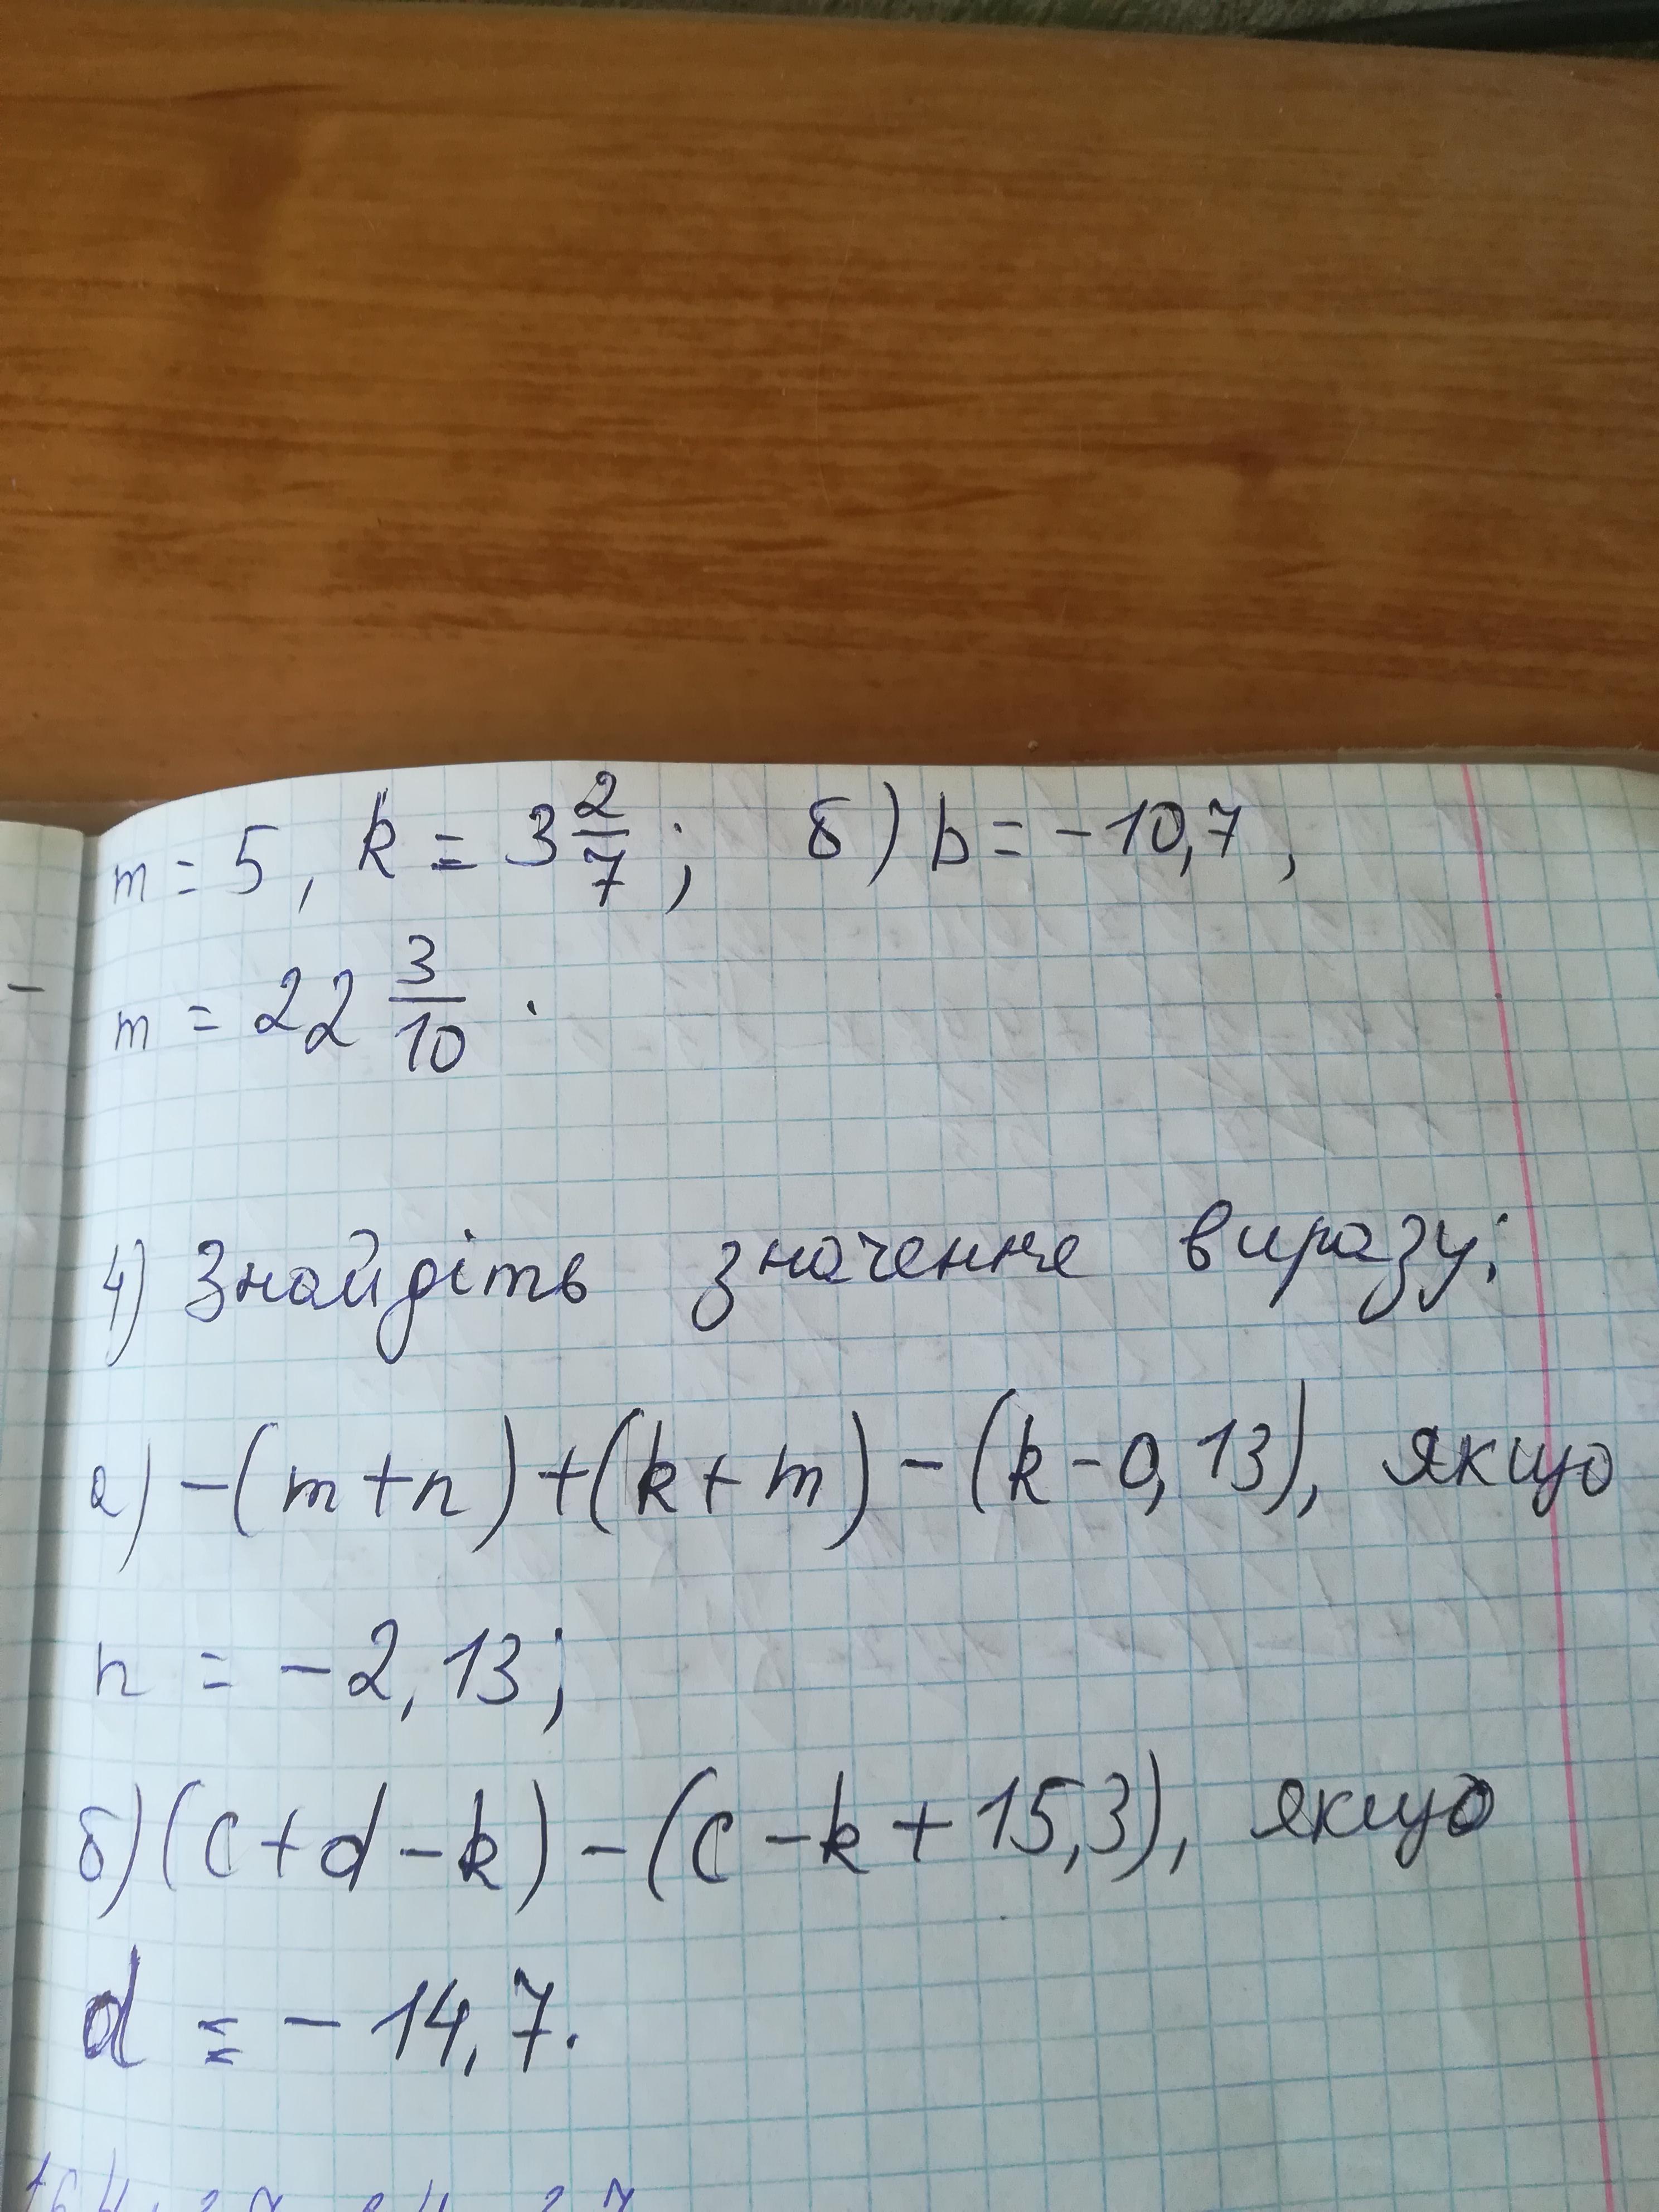 m = 5, k = 3 2/7; б) b = -10,7,
m = 22 3/10.
4) Знайдіть значення виразу:
а) -(m+n)+(k+m)-(k-0,13), якщо
n = -2,13;
б) (c+d-k)-(c-k+15,3), якщо
d = -14,7.